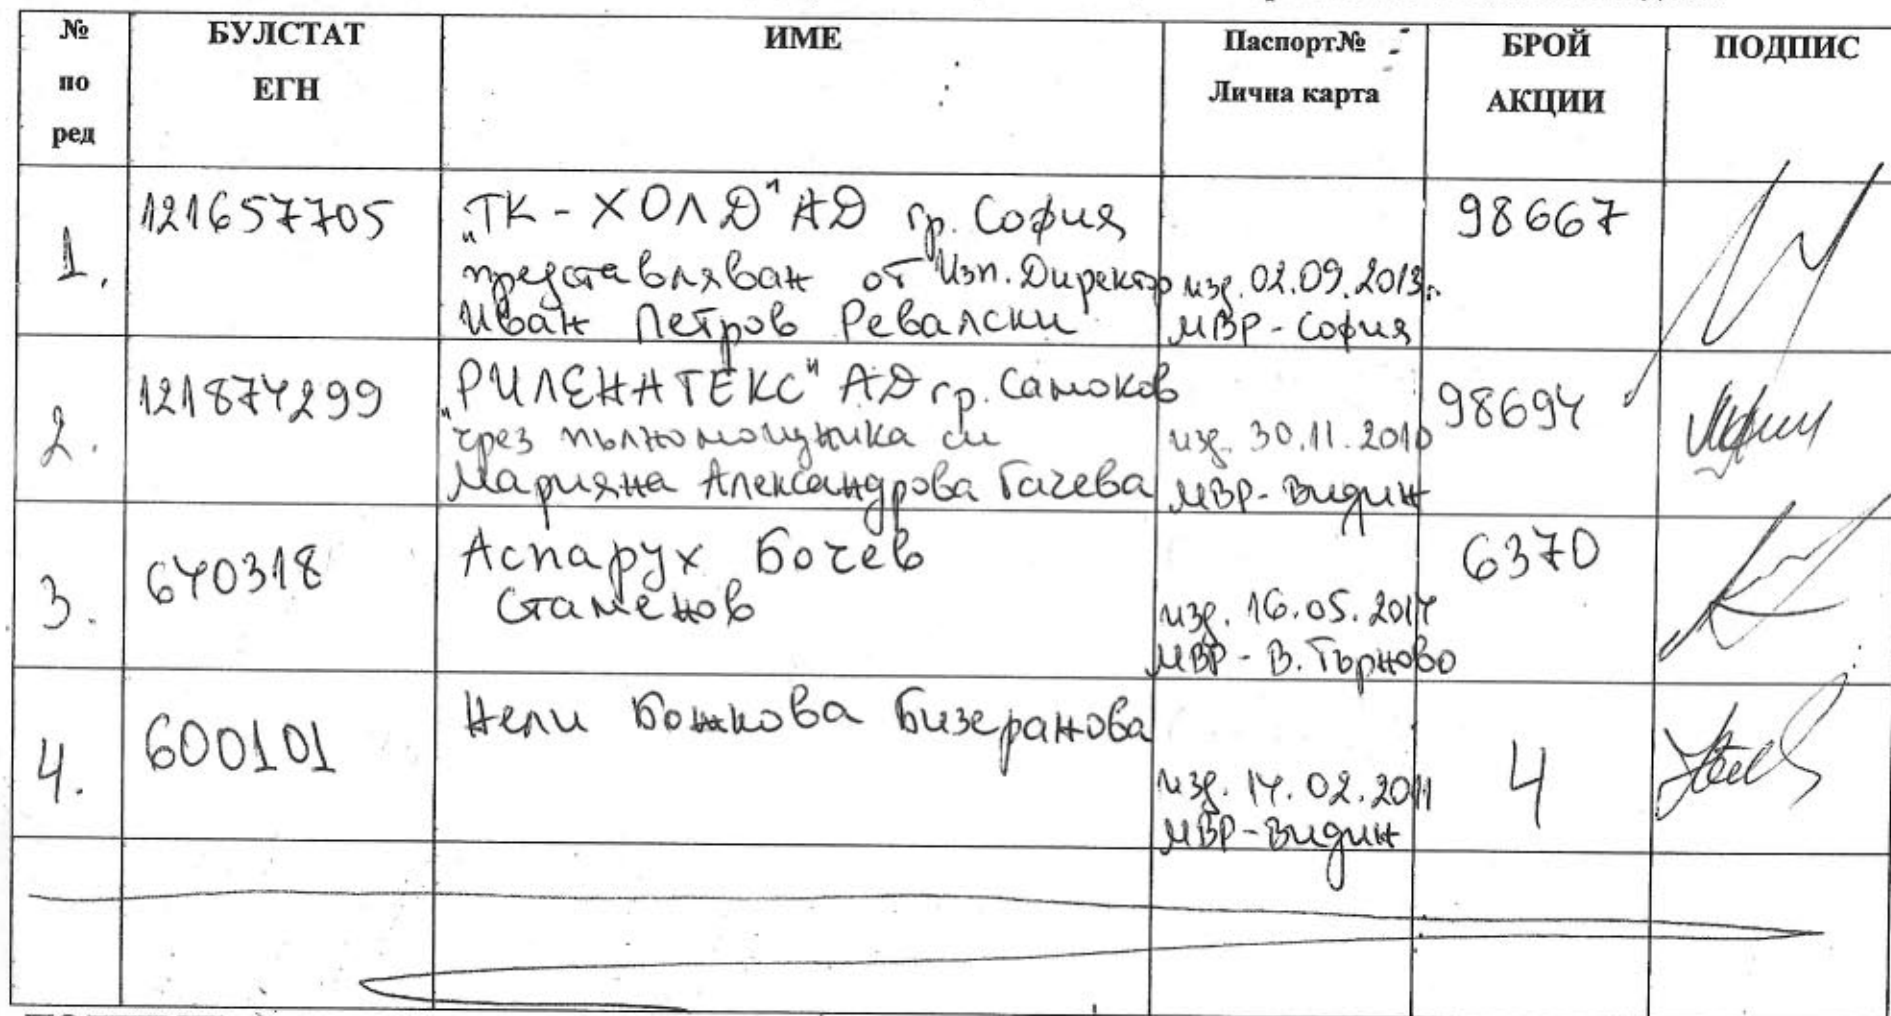 № по ред
БУЛСТАТ ЕГН
ИМЕ
Паспорт№ Лична карта
БРОЙ АКЦИИ
ПОДПИС
1.
121657705
„ТК-ХОЛД" АД гр. София
представляван от Изп. Директор
Иван Петров Ревалски
изд. 02.09.2013г.
МВР-София
98667
2.
121874299
„РИЛЕНАТЕКС" АД гр. Самоков
чрез пълномощника си
Марияна Александрова Гачева
изд. 30.11.2010
МВР-Видин
98694
3.
640318
Аспарух Бочев
Стаменов
изд. 16.05.2014
МВР-В. Търново
6370
4.
600101
Нели Божкова Бизеранова
изд. 14.02.2011
МВР-Видин
4